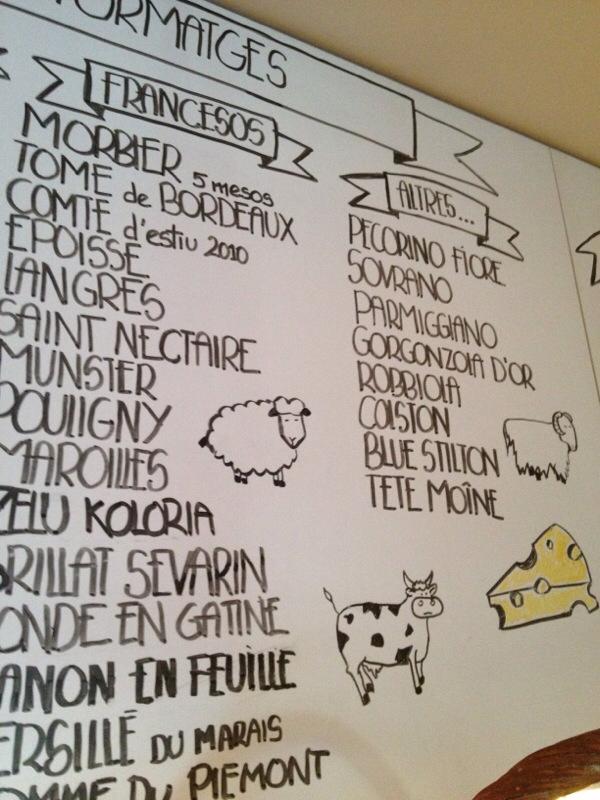 FORMATGES
FRANCESOS
MORBIER 5 mesos
TOME de BORDEAUX
COMTE d'estiu 2010
EPOISSE
LANGRES
SAINT NECTAIRE
MUNSTER
POULIGNY
MAROILLES
ZELU KOLORIA
BRILLAT SEVARIN
ONDE EN GATINE
BANON EN FEUILLE
PERSILLÉ DU MARAIS
TOMME DU PIEMONT
ALTRES...
PECORINO FIORE
SOVRANO
PARMIGGIANO
GORGONZOLA D'OR
ROBBIOLA
COLSTON
BLUE STILTON
TETE MOÎNE